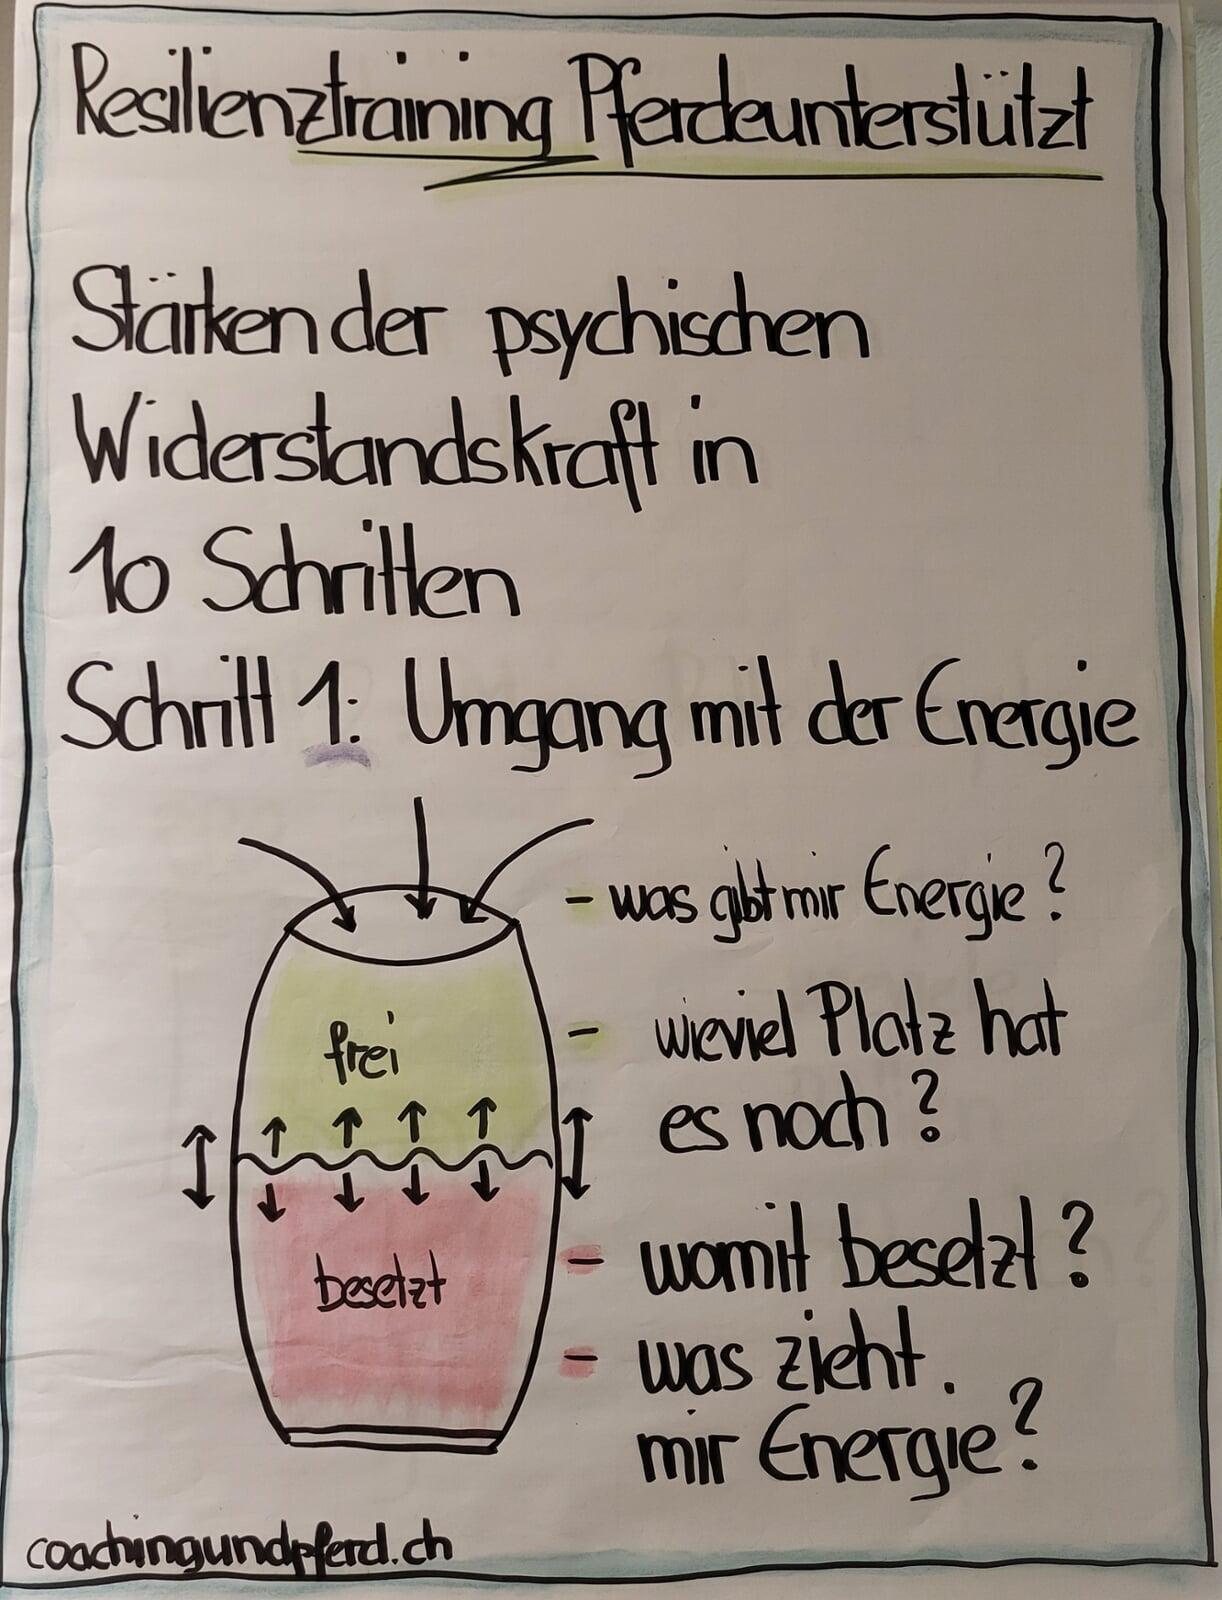 Resilienztraining Pferdeunterstützt
Stärken der psychischen
Widerstandskraft in
10 Schritten
Schritt 1: Umgang mit der Energie
- was gibt mir Energie?
frei
- wieviel Platz hat
es noch?
besetzt
- womit besetzt?
- was zieht.
mir Energie?
coachingundpferd.ch